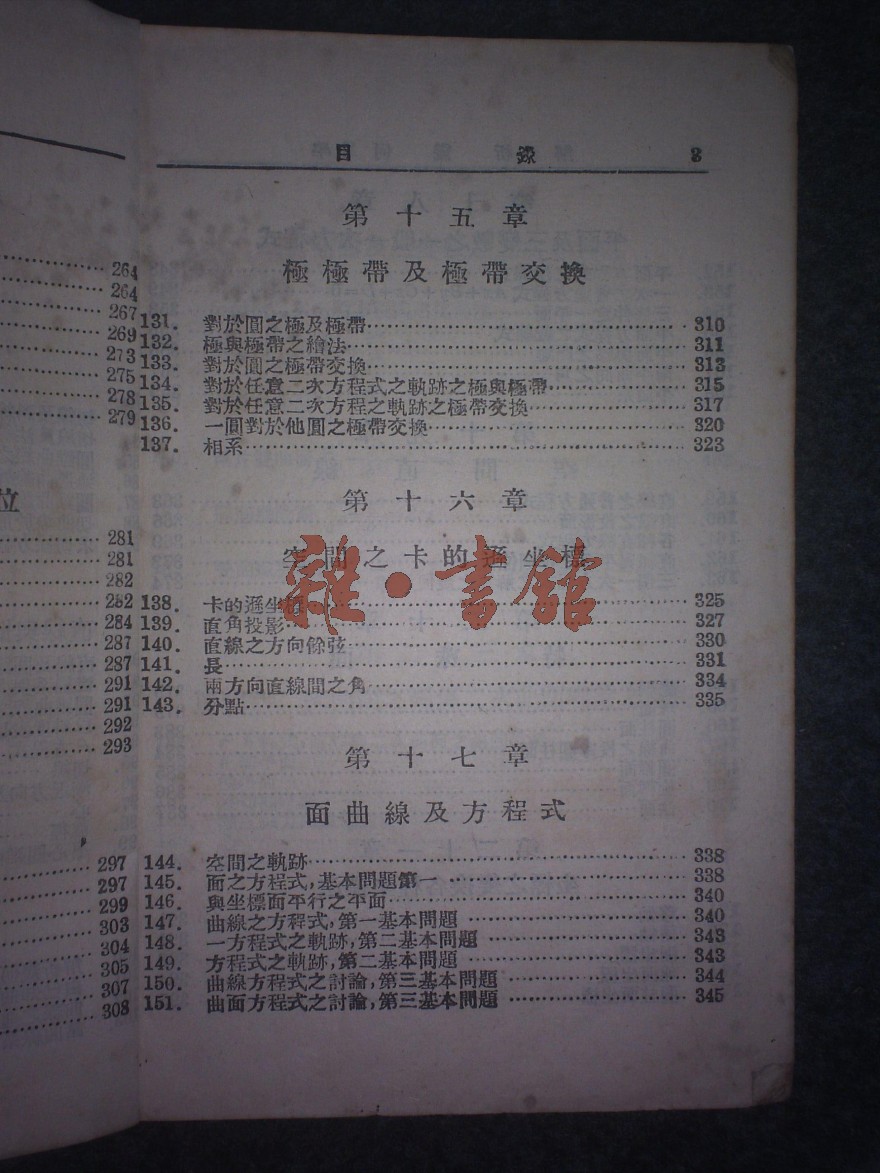 264
264
267
269
273
275
278
279
位
281
281
282
282
284
287
287
291
291
292
293
297
297
299
303
304
305
307
308
目 錄 3
第十五章
極極帶及極帶交換
131. 對於圓之極及極帶 310
132. 極與極帶之繪法 311
133. 對於圓之極帶交換 313
134. 對於任意二次方程式之軌跡之極與極帶 315
135. 對於任意二次方程之軌跡之極帶交換 317
136. 一圓對於他圓之極帶交換 320
137. 相系 323
第十六章
空間之卡的遜坐標
138. 卡的遜坐標 325
139. 直角投影 327
140. 直線之方向餘弦 330
141. 長 331
142. 兩方向直線間之角 334
143. 分點 335
雜·書館
第十七章
面曲線及方程式
144. 空間之軌跡 338
145. 面之方程式,基本問題第一 338
146. 與坐標面平行之平面 340
147. 曲線之方程式,第一基本問題 340
148. 一方程式之軌跡,第二基本問題 343
149. 方程式之軌跡,第二基本問題 343
150. 曲線方程式之討論,第三基本問題 344
151. 曲面方程式之討論,第三基本問題 345